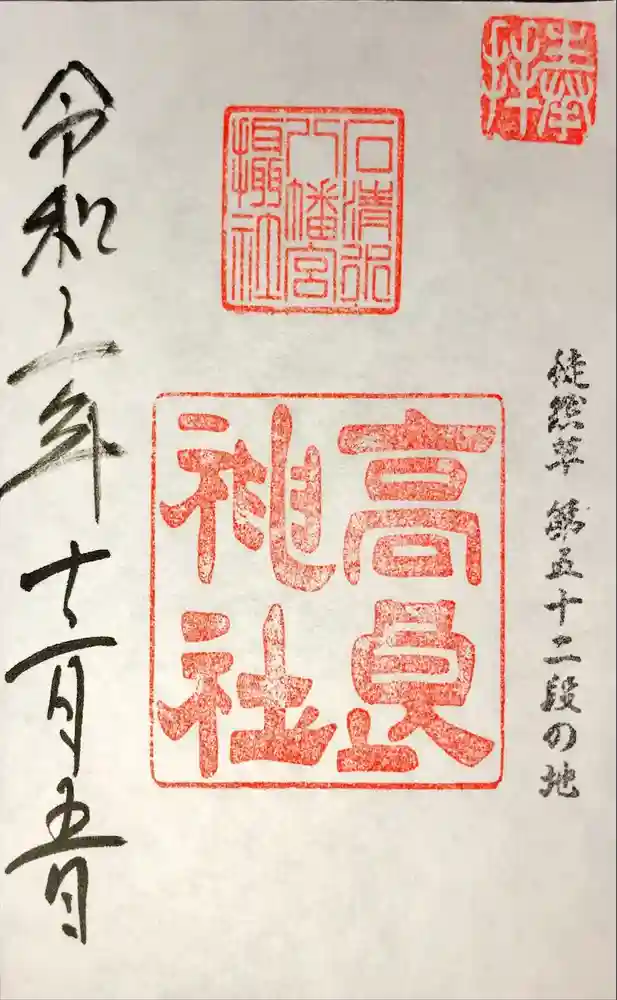 奉拝
徒然草 第五十二段の地
石清水
八幡宮
攝社
高良
神社
令和三年十二月五日